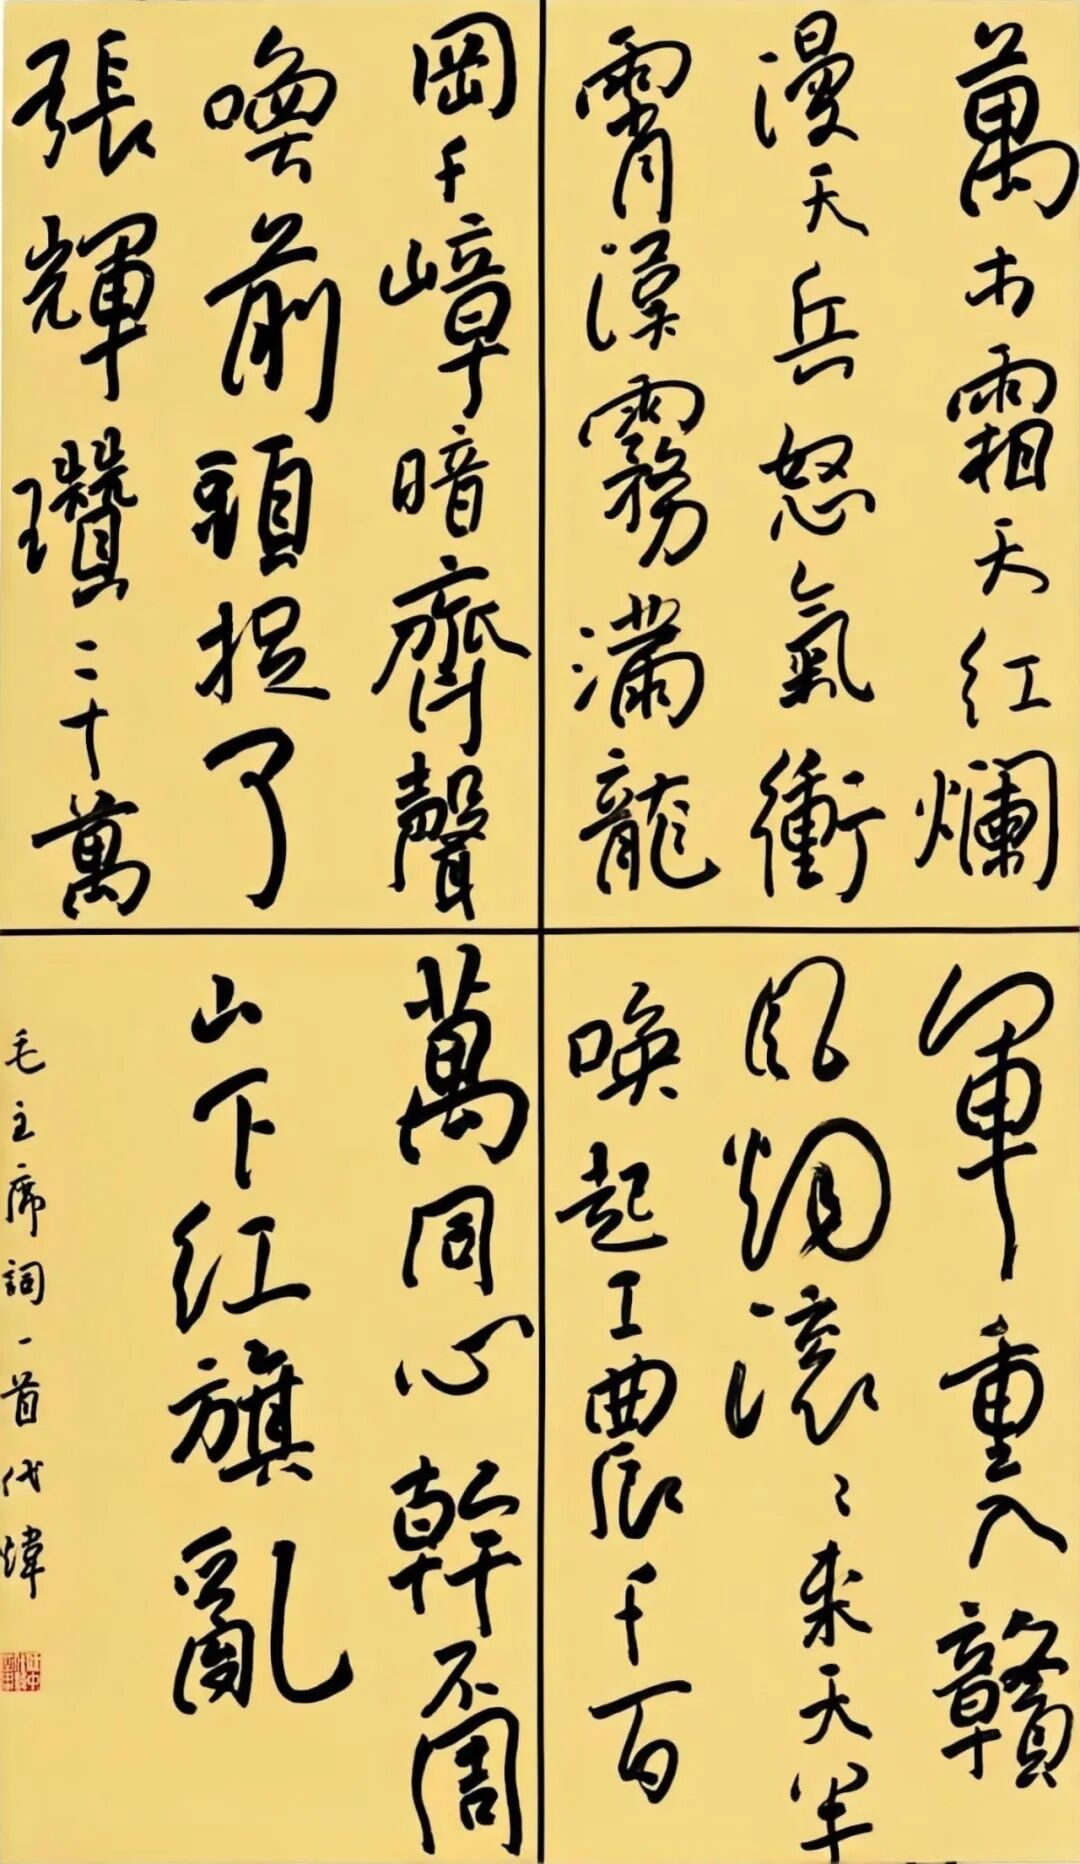 萬木霜天红爛
漫天兵怒氣衝
霄漢霧滿龍
岡千嶂暗齊聲
喚前頭捉了
張輝瓚二十萬
軍重入贛
風烟滚〻来天半
唤起工農千百
萬同心幹不周
山下红旗亂
毛主席詞一首代煒